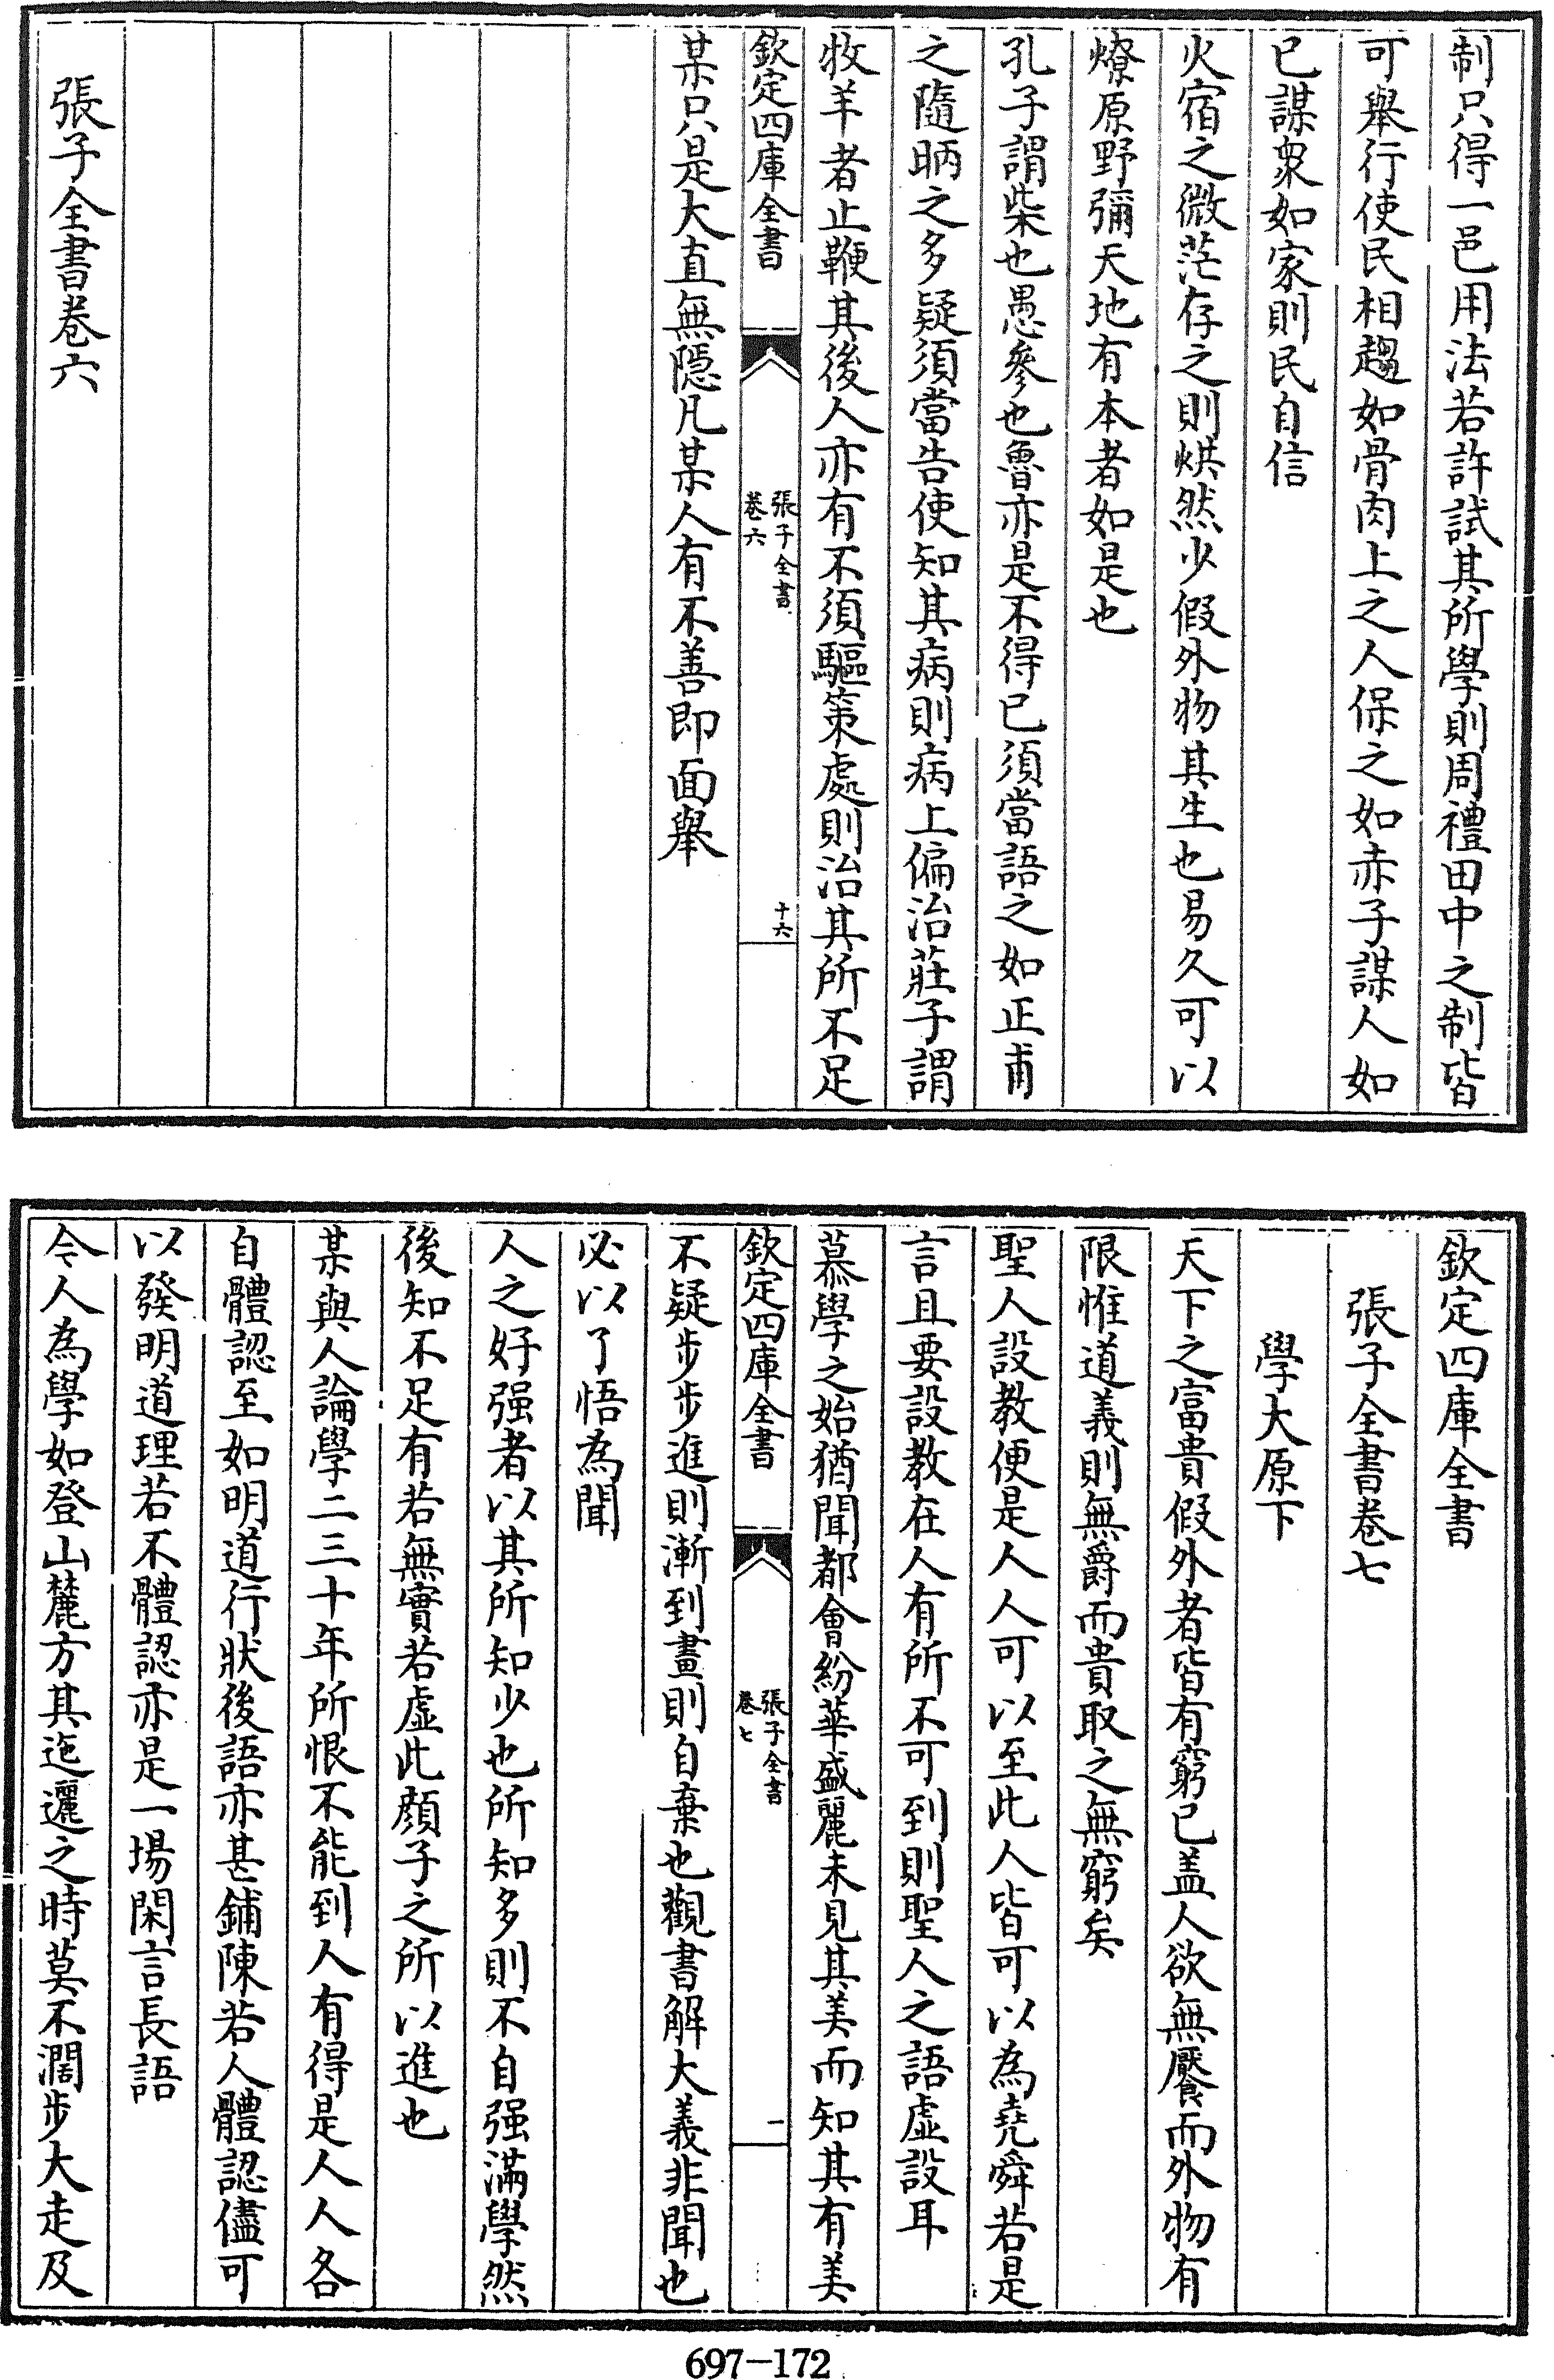 制只得一邑用法若許試其所學則周禮田中之制皆
可舉行使民相趨如骨肉上之人保之如赤子謀人如
已謀衆如家則民自信
火宿之微茫存之則烘然少假外物其生也易久可以
燎原野彌天地有本者如是也
孔子謂柴也愚參也魯亦是不得已須當語之如正甫
之隨昞之多疑須當告使知其病則病上偏治莊子謂
牧羊者止鞭其後人亦有不須驅策處則治其所不足
欽定四庫全書
張子全書
卷六
十六
某只是大直無隱凡某人有不善即面舉
張子全書卷六
欽定四庫全書
張子全書卷七
學大原下
天下之富貴假外者皆有窮已盖人欲無饜而外物有
限惟道義則無爵而貴取之無窮矣
聖人設教便是人人可以至此人皆可以為堯舜若是
言且要設教在人有所不可到則聖人之語虛設耳
慕學之始猶聞都會紛華盛麗未見其美而知其有美
欽定四庫全書
張子全書
卷七
一
不疑步步進則漸到畫則自棄也觀書解大義非聞也
必以了悟為聞
人之好强者以其所知少也所知多則不自强滿學然
後知不足有若無實若虛此顔子之所以進也
某與人論學二三十年所恨不能到人有得是人人各
自體認至如明道行狀後語亦甚鋪陳若人體認儘可
以發明道理若不體認亦是一場閑言長語
令人為學如登山麓方其迤邐之時莫不濶步大走及
697-172